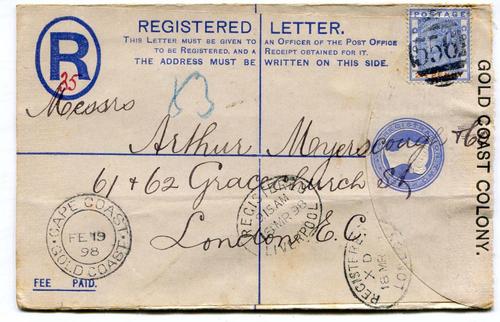 REGISTERED LETTER.
THIS LETTER MUST BE GIVEN TO AN OFFICER OF THE POST OFFICE
TO BE REGISTERED, AND A RECEIPT OBTAINED FOR IT.
THE ADDRESS MUST BE WRITTEN ON THIS SIDE.
R
35
POSTAGE
556
GOLD COAST COLONY.
Messrs
Arthur Myerscough & Co
61 & 62 Gracechurch St
London E.C.
REGISTERED
915AM
MR 98
LIVERPOOL
CAPE COAST
FE 19
98
GOLD COAST
REGISTERED
XD
18 MR
FEE PAID.